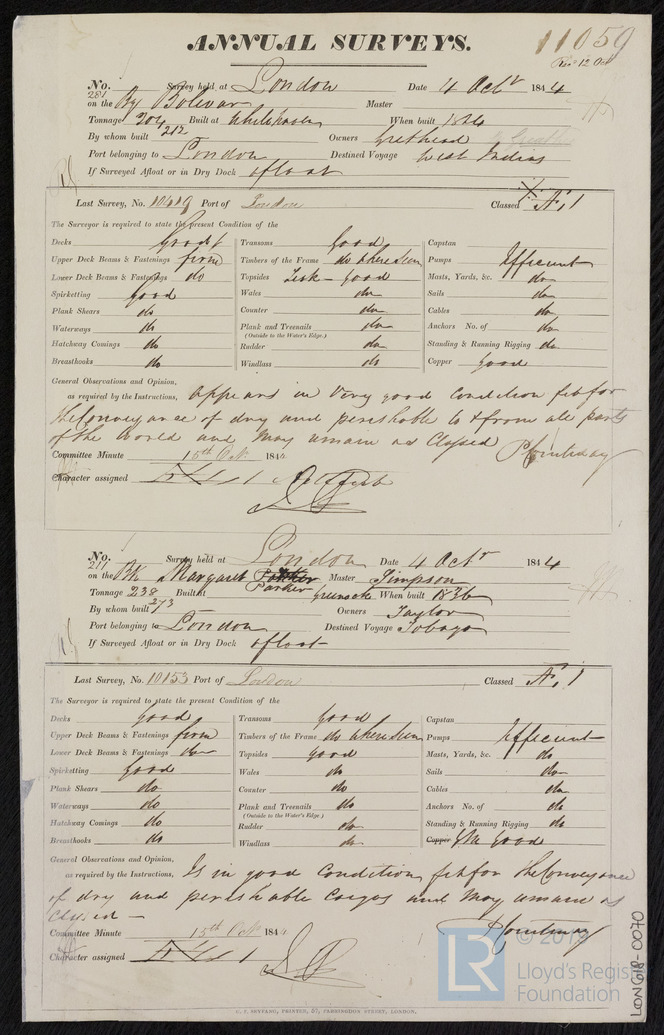 ANNUAL SURVEYS.
11059
Rec 12 Oct
No. 281 Survey held at London Date 4 Octr 1844
on the Bg Bolivar Master
Tonnage 204 212 Built at Whitehaven When built 1824
By whom built Owners Grethead
Port belonging to London Destined Voyage West Indies
If Surveyed Afloat or in Dry Dock afloat
Last Survey, No. 10619 Port of London Classed Æ 1
The Surveyor is required to state the present Condition of the
Decks good Transoms Good Capstan
Upper Deck Beams & Fastenings firm Timbers of the Frame do where seen Pumps Efficient
Lower Deck Beams & Fastenings do Topsides Teak - good Masts, Yards, &c. do
Spirketting Good Wales do Sails do
Plank Shears do Counter do Cables do
Waterways do Plank and Treenails do Anchors No. of do
(Outside to the Water's Edge.)
Hatchway Comings do Rudder do Standing & Running Rigging do
Breasthooks do Windlass do Copper good
General Observations and Opinion,
as required by the Instructions, Appears in Very good Condition fit for
the Conveyance of dry and perishable to & from all parts
of the World and May remain as Classed P Courtenay
Committee Minute 15th Oct 1844
Character assigned Æ 1
No. 211 Survey held at London Date 4 Octr 1844
on the Bk Margaret Parker Master Simpson
Tonnage 238 273 Built at Greenock When built 1836
By whom built Owners Taylor
Port belonging to London Destined Voyage Tobago
If Surveyed Afloat or in Dry Dock afloat
Last Survey, No. 10153 Port of London Classed Æ 1
The Surveyor is required to state the present Condition of the
Decks good Transoms Good Capstan
Upper Deck Beams & Fastenings firm Timbers of the Frame do where seen Pumps Efficient
Lower Deck Beams & Fastenings do Topsides good Masts, Yards, &c. do
Spirketting Good Wales do Sails do
Plank Shears do Counter do Cables do
Waterways do Plank and Treenails do Anchors No. of do
(Outside to the Water's Edge.)
Hatchway Comings do Rudder do Standing & Running Rigging do
Breasthooks do Windlass do Copper Good
General Observations and Opinion,
as required by the Instructions, Is in good Condition, fit for the Conveyance
of dry and perishable Cargos and May remain as
Classed -
P Courtenay
Committee Minute 15th Oct 1844
Character assigned Æ 1
C. F. SEYFANG, PRINTER, 57, FARRINGDON STREET, LONDON.
LR
Lloyd's Register
Foundation
LON618-0070